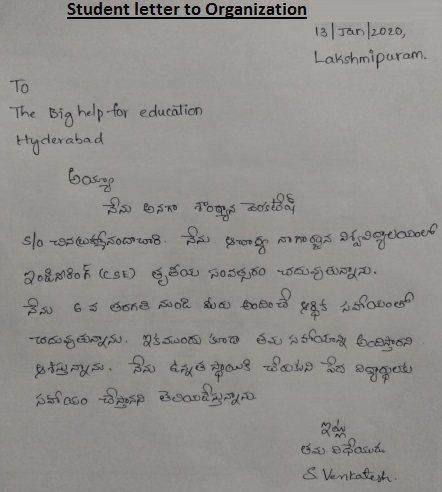 Student letter to Organization
13/Jan/2020,
Lakshmipuram.
To
The Big help-for education
Hyderabad
అయ్యా
నేను అనగా వెంకటేష్
S/o నేను ఆచార్య నాగార్జున విశ్వవిద్యాలయంలో
ఇంజినీరింగ్ (CSE) తృతీయ సంవత్సరం చదువుతున్నాను.
నేను 6 వ తరగతి నుండి మీరు అందించే ఆర్థిక సహాయంతో
చదువుతున్నాను. ఇకముందు కూడా తమ సహాయాన్ని అందిస్తారని
ఆశిస్తున్నాను. నేను ఉన్నత స్థాయికి చేరుకుని పేద విద్యార్థులకు
సహాయం చేస్తానని తెలియజేస్తున్నాను
ఇట్లు
తమ విధేయుడు.
S. Venkatesh.